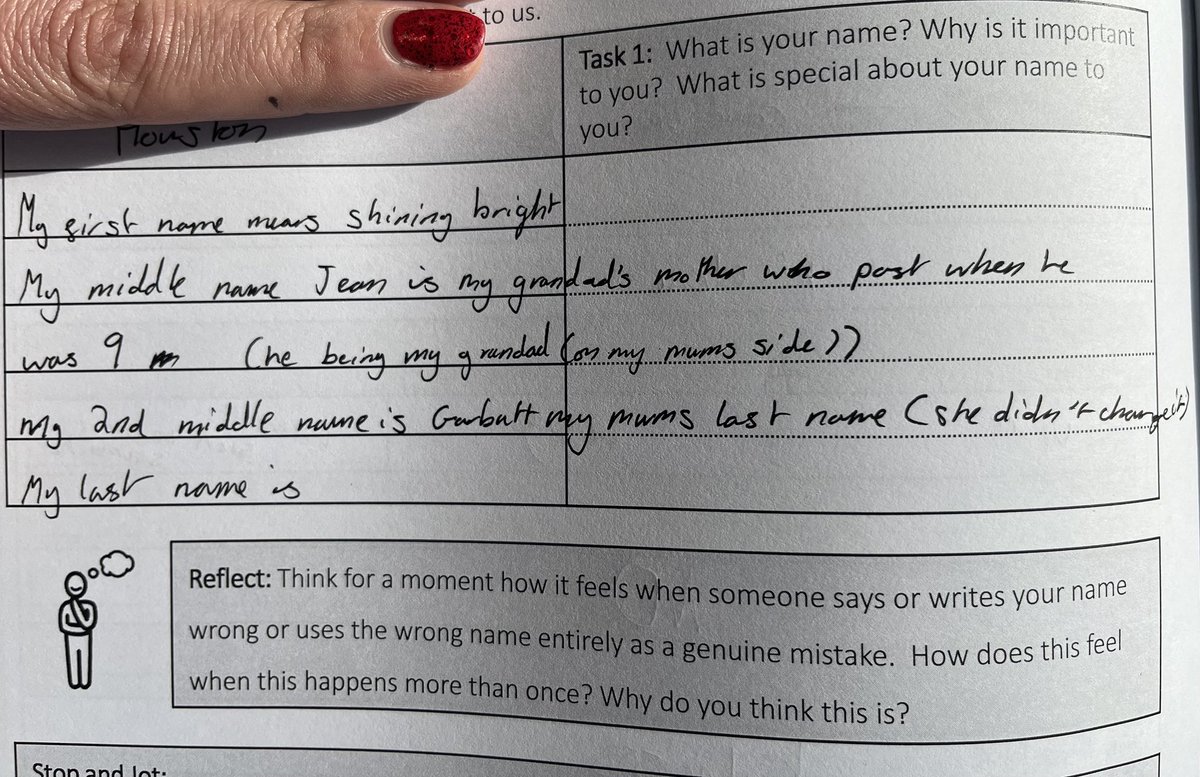 to us.
Task 1: What is your name? Why is it important
to you? What is special about your name to
you?
My first name means shining bright
My middle name Jean is my grandad's mother who past when he
was 9 (he being my grandad (on my mums side))
my 2nd middle name is Garbutt my mums last name (she didn't change it)
My last name is
Reflect: Think for a moment how it feels when someone says or writes your name
wrong or uses the wrong name entirely as a genuine mistake. How does this feel
when this happens more than once? Why do you think this is?
Stop and Jot: